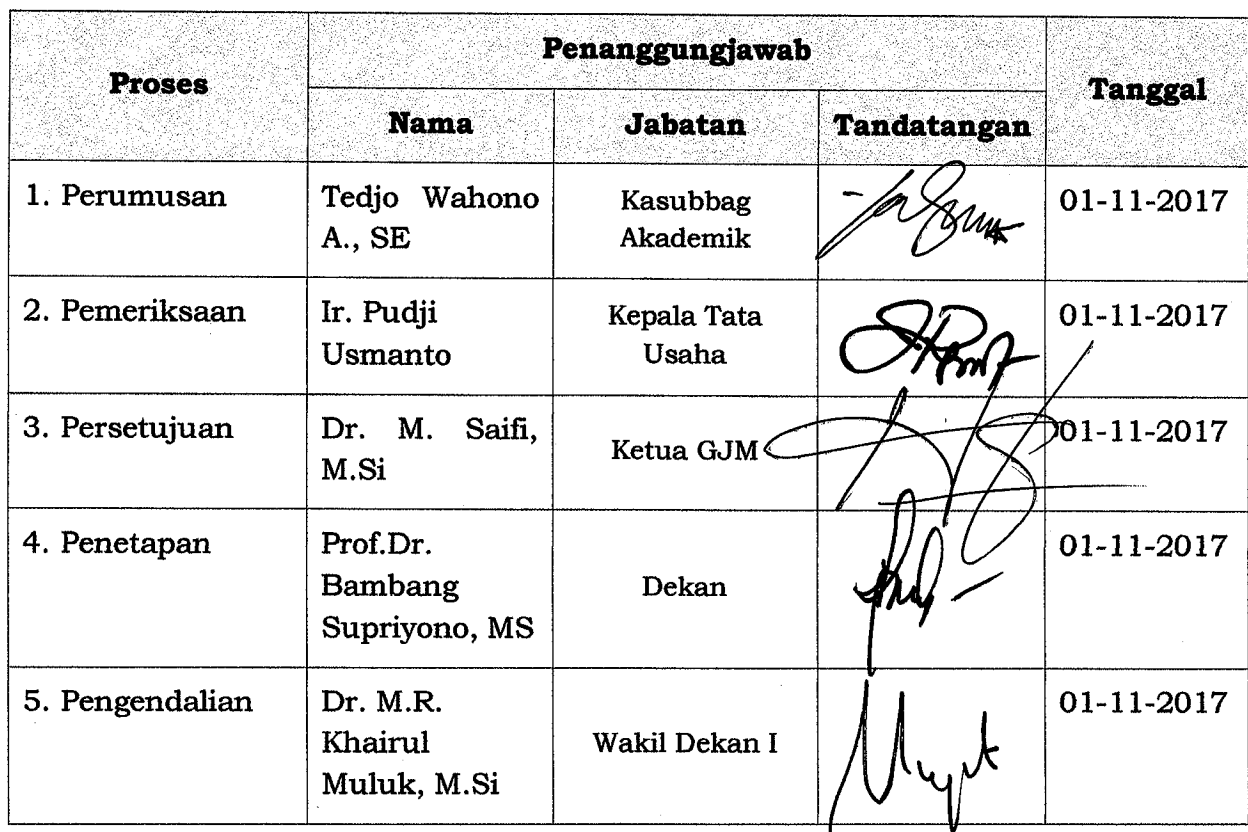 Proses
Penanggungjawab
Tanggal
Nama
Jabatan
Tandatangan
1. Perumusan
Tedjo Wahono
A., SE
Kasubbag
Akademik
01-11-2017
2. Pemeriksaan
Ir. Pudji
Usmanto
Kepala Tata
Usaha
01-11-2017
3. Persetujuan
Dr. M. Saifi,
M.Si
Ketua GJM
01-11-2017
4. Penetapan
Prof.Dr.
Bambang
Supriyono, MS
Dekan
01-11-2017
5. Pengendalian
Dr. M.R.
Khairul
Muluk, M.Si
Wakil Dekan I
01-11-2017